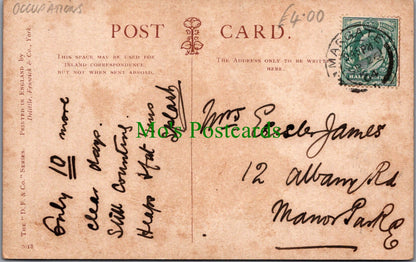 OCCUPATIONS
£4:00
POST CARD.
THIS SPACE MAY BE USED FOR
INLAND CORRESPONDENCE,
BUT NOT WHEN SENT ABROAD.
THE ADDRESS ONLY TO BE WRITTEN
HERE.
MARGA
PM
HALFPENNY
THE "D. F. & CO." SERIES. PRINTED IN ENGLAND BY
Delittle, Fenwick & Co., York.
Only 10 more
clear days.
Still Counting
Heaps & fat
Splash
Mrs James
12 Albany Rd
Manor Park E
Mo's Postcards